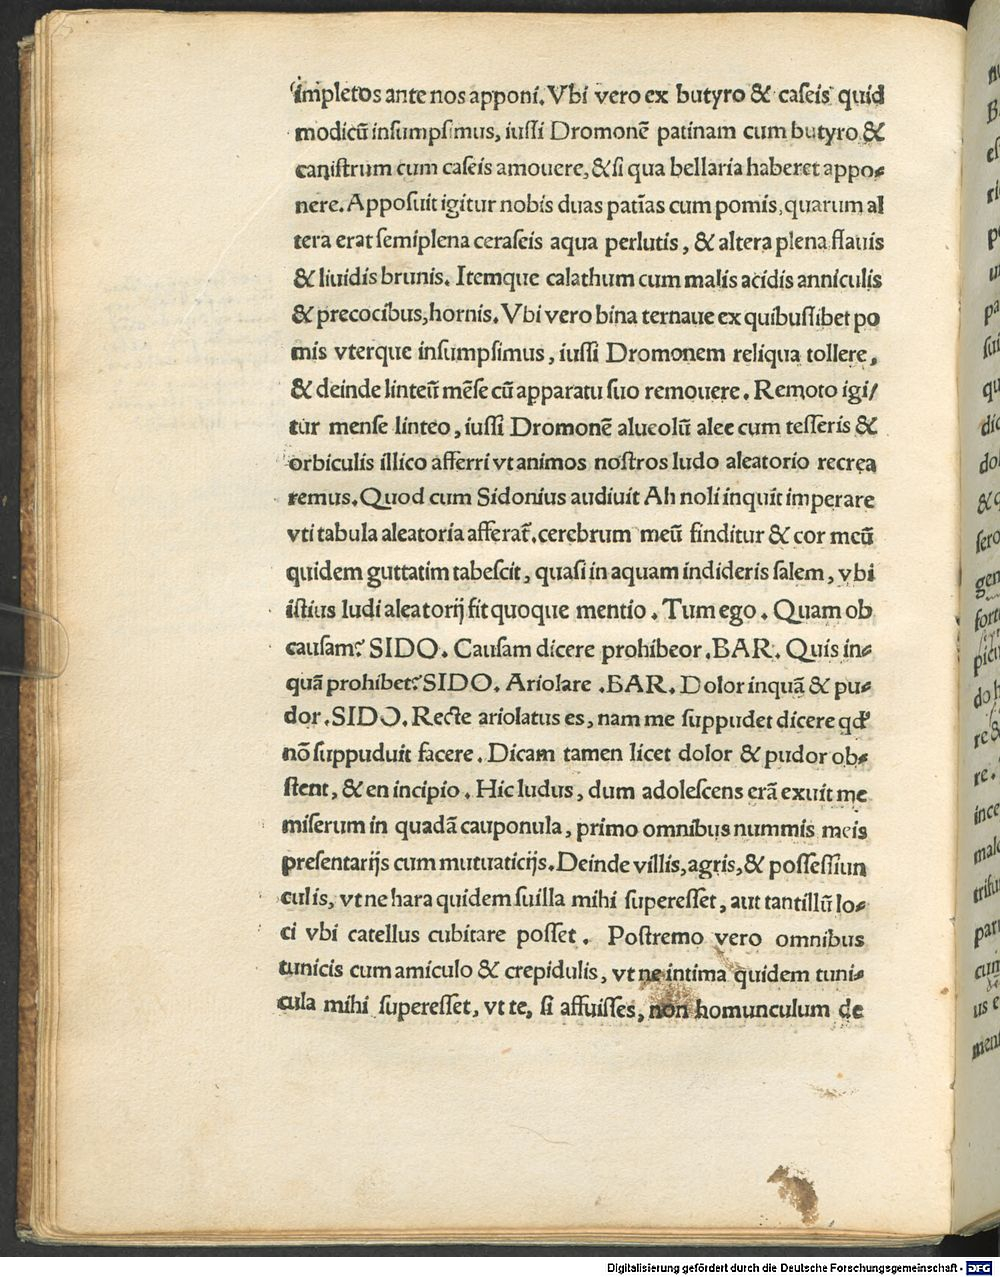 impletos ante nos apponi. Vbi vero ex butyro & caſeis quid
modicū inſumpſimus, iuſſi Dromonē patinam cum butyro &
caniſtrum cum caſeis amouere, & ſi qua bellaria haberet appo-
nere. Appoſuit igitur nobis duas patīas cum pomis, quarum al
tera erat ſemiplena ceraſeis aqua perlutis, & altera plena flauis
& liuidis brunis. Itemque calathum cum malis acidis anniculis
& precocibus, hornis. Vbi vero bina ternaue ex quibuſlibet po
mis vterque inſumpſimus, iuſſi Dromonem reliqua tollere,
& deinde linteū mēſe cū apparatu ſuo remouere. Remoto igi/
tur menſe linteo, iuſſi Dromonē alueolū alee cum teſſeris &
orbiculis illico afferri vt animos noſtros ludo aleatorio recrea
remus. Quod cum Sidonius audiuit Ah noli inquit imperare
vti tabula aleatoria afferat̄. cerebrum meū finditur & cor meū
quidem guttatim tabeſcit, quaſi in aquam indideris ſalem, vbi
iſtius ludi aleatorij fit quoque mentio. Tum ego. Quam ob
cauſam? SIDO. Cauſam dicere prohibeor. BAR. Quis in-
quā prohibet? SIDO. Ariolare. BAR. Dolor inquā & pu-
dor. SIDO. Recte ariolatus es, nam me ſuppudet dicere qđ
nō ſuppuduit facere. Dicam tamen licet dolor & pudor ob-
ſtent, & en incipio. Hic ludus, dum adoleſcens erā exuit me
miſerum in quadā cauponula, primo omnibus nummis meis
preſentarijs cum mutuaticijs. Deinde villis, agris, & poſſeſſiun
culis, vt ne hara quidem ſuilla mihi ſupereſſet, aut tantillū lo-
ci vbi catellus cubitare poſſet. Poſtremo vero omnibus
tunicis cum amiculo & crepidulis, vt ne intima quidem tuni-
cula mihi ſupereſſet, vt te, ſi affuiſſes, non homunculum de
Digitalisierung gefördert durch die Deutsche Forschungsgemeinschaft - DFG